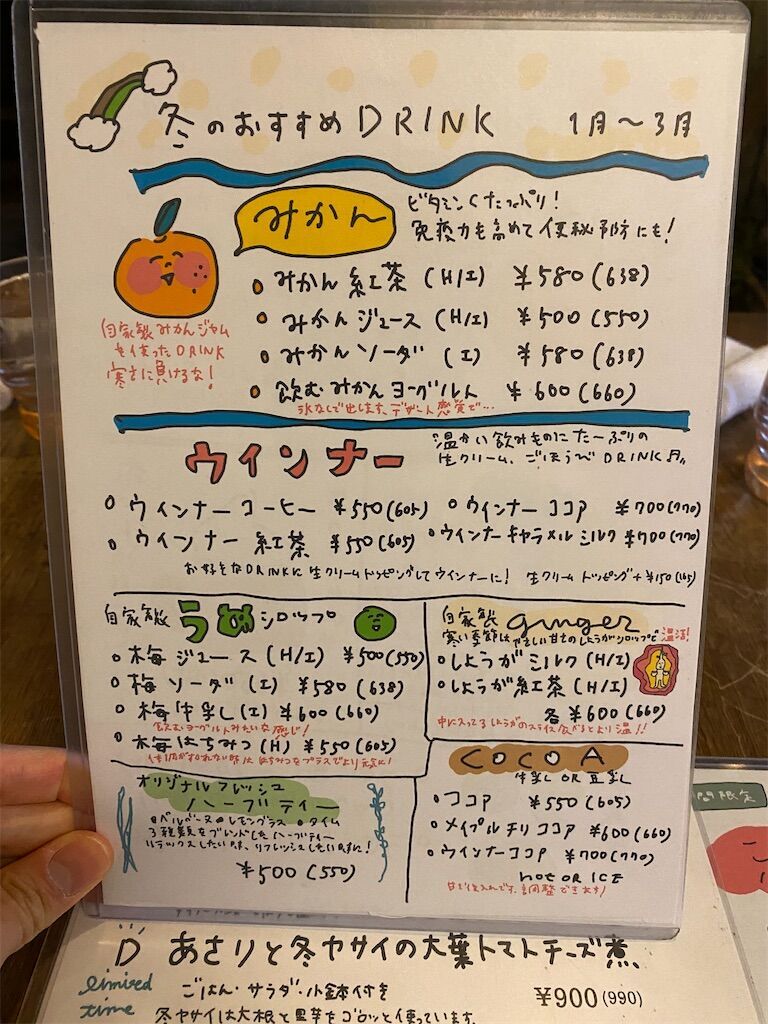 冬のおすすめDRINK 1月～3月
みかん
ビタミンCたっぷり!
免疫力も高めて便秘予防にも!
みかん紅茶 (H/I) ¥580(638)
みかんジュース (H/I) ¥500(550)
みかんソーダ (I) ¥580(638)
飲むみかんヨーグルト ¥600(660)
氷なしで出します。デザート感覚で…
自家製みかんジャム
を使ったDRINK
寒さに負けるな!
ウインナー
温かい飲みものにたーぷりの
生クリーム、ごほうびDRINK
ウインナーコーヒー ¥550(605)
ウインナーココア ¥700(770)
ウインナー紅茶 ¥550(605)
ウインナーキャラメルミルク ¥700(770)
お好きなDRINKに生クリームトッピングしてウインナーに! 生クリームトッピング+¥150(165)
自家製うめシロップ
梅ジュース(H/I) ¥500(550)
梅ソーダ(I) ¥580(638)
梅牛乳(I) ¥600(660)
飲むヨーグルトみたいな感じ!
梅はちみつ(H) ¥550(605)
はちみつをプラスでより元気に!
自家製 ginger
寒い季節はやさしい甘さのしょうがシロップで温活!
しょうがミルク(H/I)
しょうが紅茶(H/I)
各¥600(660)
中に入ってるしょうがのスライス食べるとより温!!
オリジナルフレッシュ
ハーブティー
レモングラス タイム
3種類をブレンドしたハーブティー
リラックスしたい時、リフレッシュしたい時に!
¥500(550)
COCOA
牛乳OR豆乳
ココア ¥550(605)
メイプルチリココア ¥600(660)
ウインナーココア ¥700(770)
HOT OR ICE
調整できます!
間限定
D あさりと冬ヤサイの大葉トマトチーズ煮
limited
time
ごはん・サラダ・小鉢付き
¥900(990)
冬ヤサイは大根と里芋をゴロッと使っています。